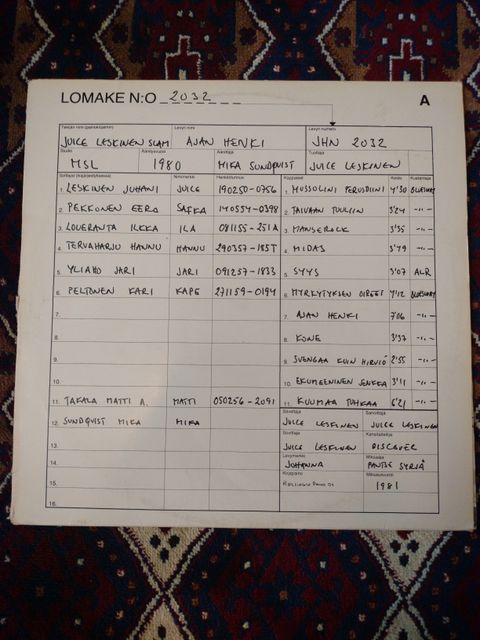 LOMAKE N:O 2032
A
Tekijän nimi Levyn nimi Levyn numero
JUICE LESKINEN SLAM AJAN HENKI JHN 2032
Studio Äänitysvuosi Äänittäjä Tuottaja
MSL 1980 MIKA SUNDQVIST JUICE LESKINEN
Nimimerkki Henkilötunnus Kappaleet Kesto Kustantaja
1. LESKINEN JUHANI JUICE 190250-0756 1. MUSSOLINI PERUSDIINI 4'30
2. PEKKONEN EERO SAFKA 140554-0398 2. TAIVAAN TUULIIN 3'24 -"-
3. LOUERANTA ILKKA ILA 081155-251A 3. MANSEROCK 3'35 -"-
4. TERVAHARJU HANNU HANNU 290357-185T 4. MIDAS 3'49 -"-
5. YLIAHO JARI JARI 091257-1833 5. SYYS 3'07 ALR
6. PELTONEN KARI KAPE 271159-0194 6. MYRKYTYKSEN OIREET 4'12
7. 7. AJAN HENKI 7'06 -"-
8. 8. KONE 3'37 -"-
9. 9. SVENGAA KUIN HIRVIÖ 2'55 -"-
10. 10. EKUMEENINEN JENKKA 3'11 -"-
11. TAKALA MATTI A. MATTI 050256-2091 11. KUUMAA TUHKAA 6'21 -"-
Säveltäjä Sanoittaja
12. SUNDQVIST MIKA MIKA JUICE LESKINEN JUICE LESKINEN
Sovittaja Kansitaiteilija
13. JUICE LESKINEN DISCOVER
Levymerkki Miksaaja
14. JOHANNA PANTSE SYRJÄ
Kirjapaino Julkaisuvuosi
15. 1981
16.